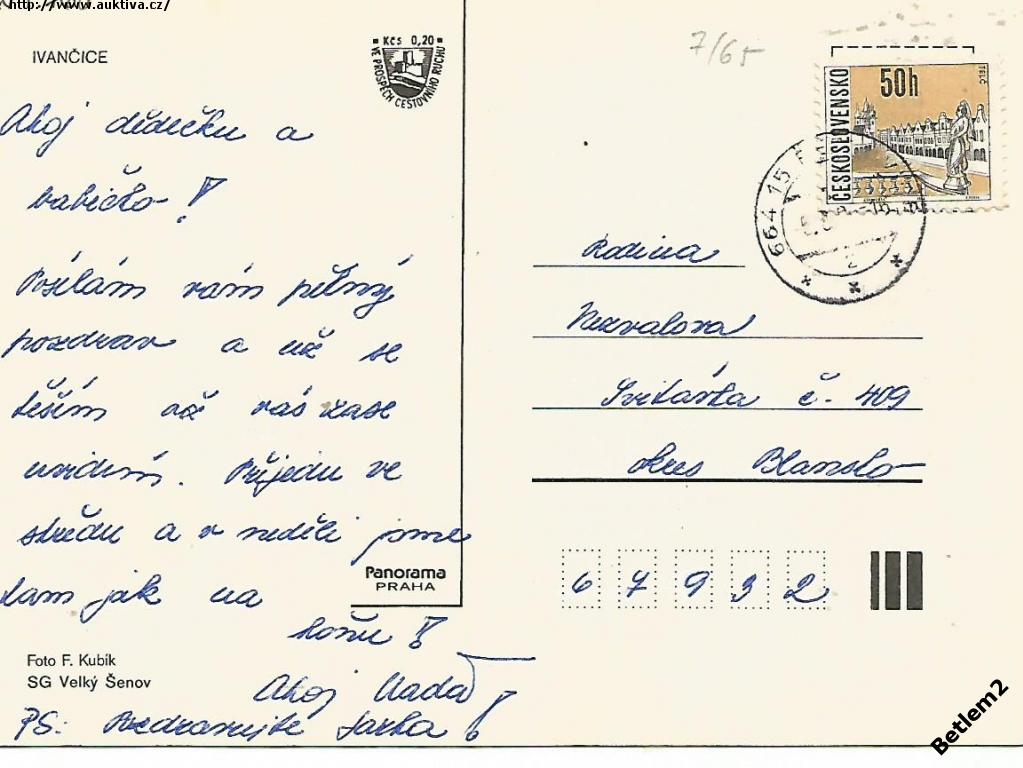 http://www.auktiva.cz/
IVANČICE
Kčs 0,20
VE PROSPĚCH CESTOVNÍHO RUCHU
7/65
ČESKOSLOVENSKO
50h
TELČ
664 15
Ahoj dědečku a
babičko!
Posílám vám pěkný
pozdrav a už se
těším až vás zase
uvidím. Přijedu ve
středu a v neděli jsme
tam jak na
koňu!
Ahoj Naďa!
PS: Pozdravujte Jarka!
Rodina
Nezvalova
Svitávka č. 409
okres Blansko
67932
Panorama
PRAHA
Foto F. Kubík
SG Velký Šenov
Betlem2